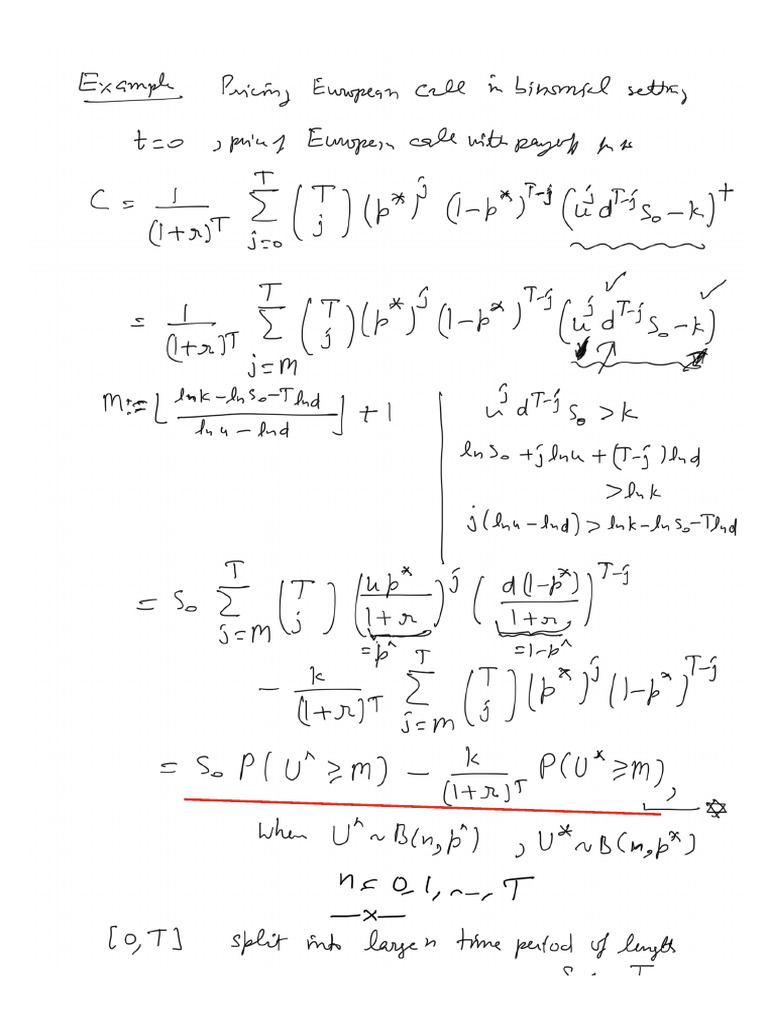 Example Pricing European call in binomial setting
t=0 , price of European call with payoff fn is
C = \frac{1}{(1+r)^T} \sum_{j=0}^{T} \binom{T}{j} (p^*)^j (1-p^*)^{T-j} (u^j d^{T-j} S_0 - k)^+
= \frac{1}{(1+r)^T} \sum_{j=m}^{T} \binom{T}{j} (p^*)^j (1-p^*)^{T-j} (u^j d^{T-j} S_0 - k)
m := \lfloor \frac{ln k - ln S_0 - T ln d}{ln u - ln d} \rfloor + 1
u^j d^{T-j} S_0 > k
ln S_0 + j ln u + (T-j) ln d
> ln k
j (ln u - ln d) > ln k - ln S_0 - T ln d
= S_0 \sum_{j=m}^{T} \binom{T}{j} (\frac{u p^*}{1+r})^j (\frac{d(1-p^*)}{1+r})^{T-j}
= p^ = 1-p^
- \frac{k}{(1+r)^T} \sum_{j=m}^{T} \binom{T}{j} (p^*)^j (1-p^*)^{T-j}
= S_0 P(U^ ≥ m) - \frac{k}{(1+r)^T} P(U^* ≥ m) , ✡
when U^ ~ B(n, p^) , U^* ~ B(n, p^*)
n = 0, 1, ..., T
—x—
[0,T] split into large n time period of length